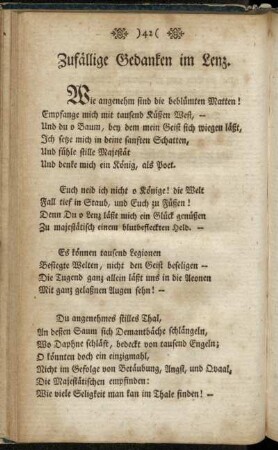 )42(
Zufällige Gedanken im Lenz.
Wie angenehm sind die beblümten Matten!
Empfange mich mit tausend Küßen West, --
Und du o Baum, bey dem mein Geist sich wiegen läßt,
Ich setze mich in deine sanften Schatten,
Und fühle stille Majestät
Und denke mich ein König, als Poet.
Euch neid ich nicht o Könige! die Welt
Fall tief in Staub, und Euch zu Füßen!
Denn Du o Lenz läßt mich ein Glück genüßen
Zu majestätisch einem blutbefleckten Held. --
Es können tausend Legionen
Besiegte Welten, nicht den Geist beseligen --
Die Tugend ganz allein läßt uns in die Aeonen
Mit ganz gelaßnen Augen sehn! --
Du angenehmes stilles Thal,
An dessen Saum sich Demantbäche schlängeln,
Wo Daphne schläft, bedeckt von tausend Engeln;
O könnten doch ein einzigmahl,
Nicht im Gefolge von Betäubung, Angst, und Qvaal,
Die Majestätischen empfinden:
Wie viele Seligkeit man kan im Thale finden! --